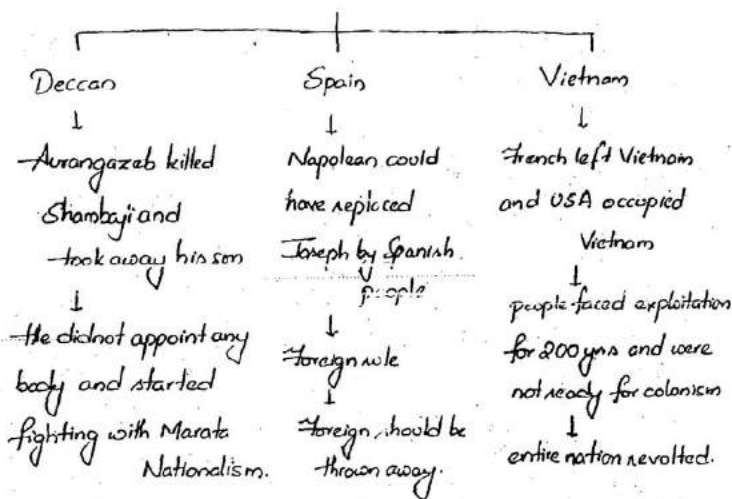 Deccan
↓
Aurangazeb killed
Shambaji and
took away his son
↓
He didnot appoint any
body and started
fighting with Marata
Nationalism.
Spain
↓
Napolean could
have replaced
Joseph by Spanish
people
↓
Foreign rule
↓
Foreign should be
thrown away.
Vietnam
↓
French left Vietnam
and USA occupied
Vietnam
↓
people faced exploitation
for 200 yrs and were
not ready for colonism
↓
entire nation revolted.